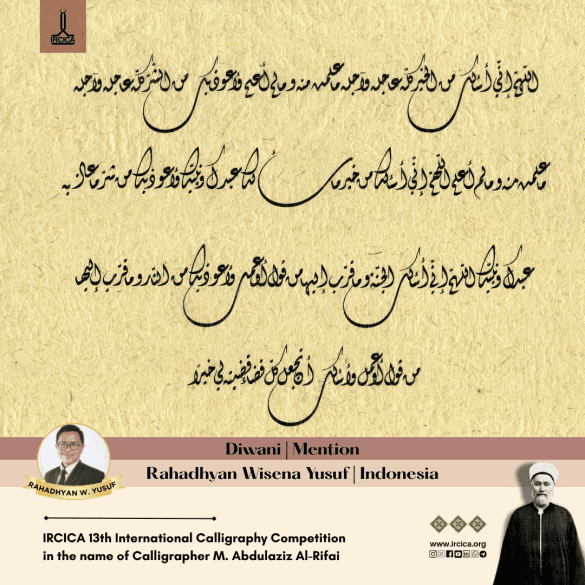 IRCICA
اللهم إني أسألك من الخير كله عاجله وآجله ما علمت منه وما لم أعلم وأعوذ بك من الشر كله عاجله وآجله
ما علمت منه وما لم أعلم اللهم إني أسألك من خير ما سألك عبدك ونبيك وأعوذ بك من شر ما عاذ به
عبدك ونبيك اللهم إني أسألك الجنة وما قرب إليها من قول أو عمل وأعوذ بك من النار وما قرب إليها
من قول أو عمل وأسألك أن تجعل كل قضاء قضيته لي خيرا
Diwani | Mention
Rahadhyan Wisena Yusuf | Indonesia
RAHADHYAN W. YUSUF
IRCICA 13th International Calligraphy Competition
in the name of Calligrapher M. Abdulaziz Al-Rifai
www.ircica.org